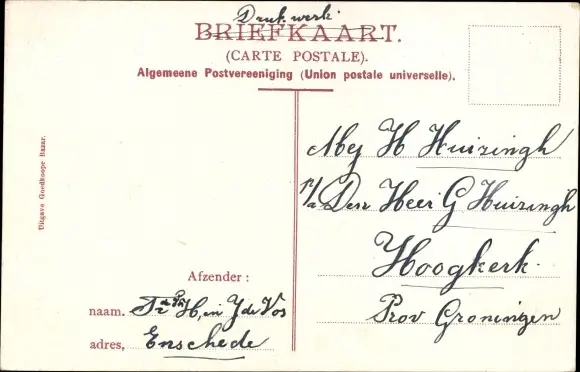 Drukwerk
BRIEFKAART.
(CARTE POSTALE).
Algemeene Postvereeniging (Union postale universelle).
Uitgave Goedkoope Bazar.
Mej H Huizingh
p/a Den Heer G Huizingh
Hoogkerk.
Prov Groningen
Afzender :
naam. H, en J de Vos
adres, Enschede